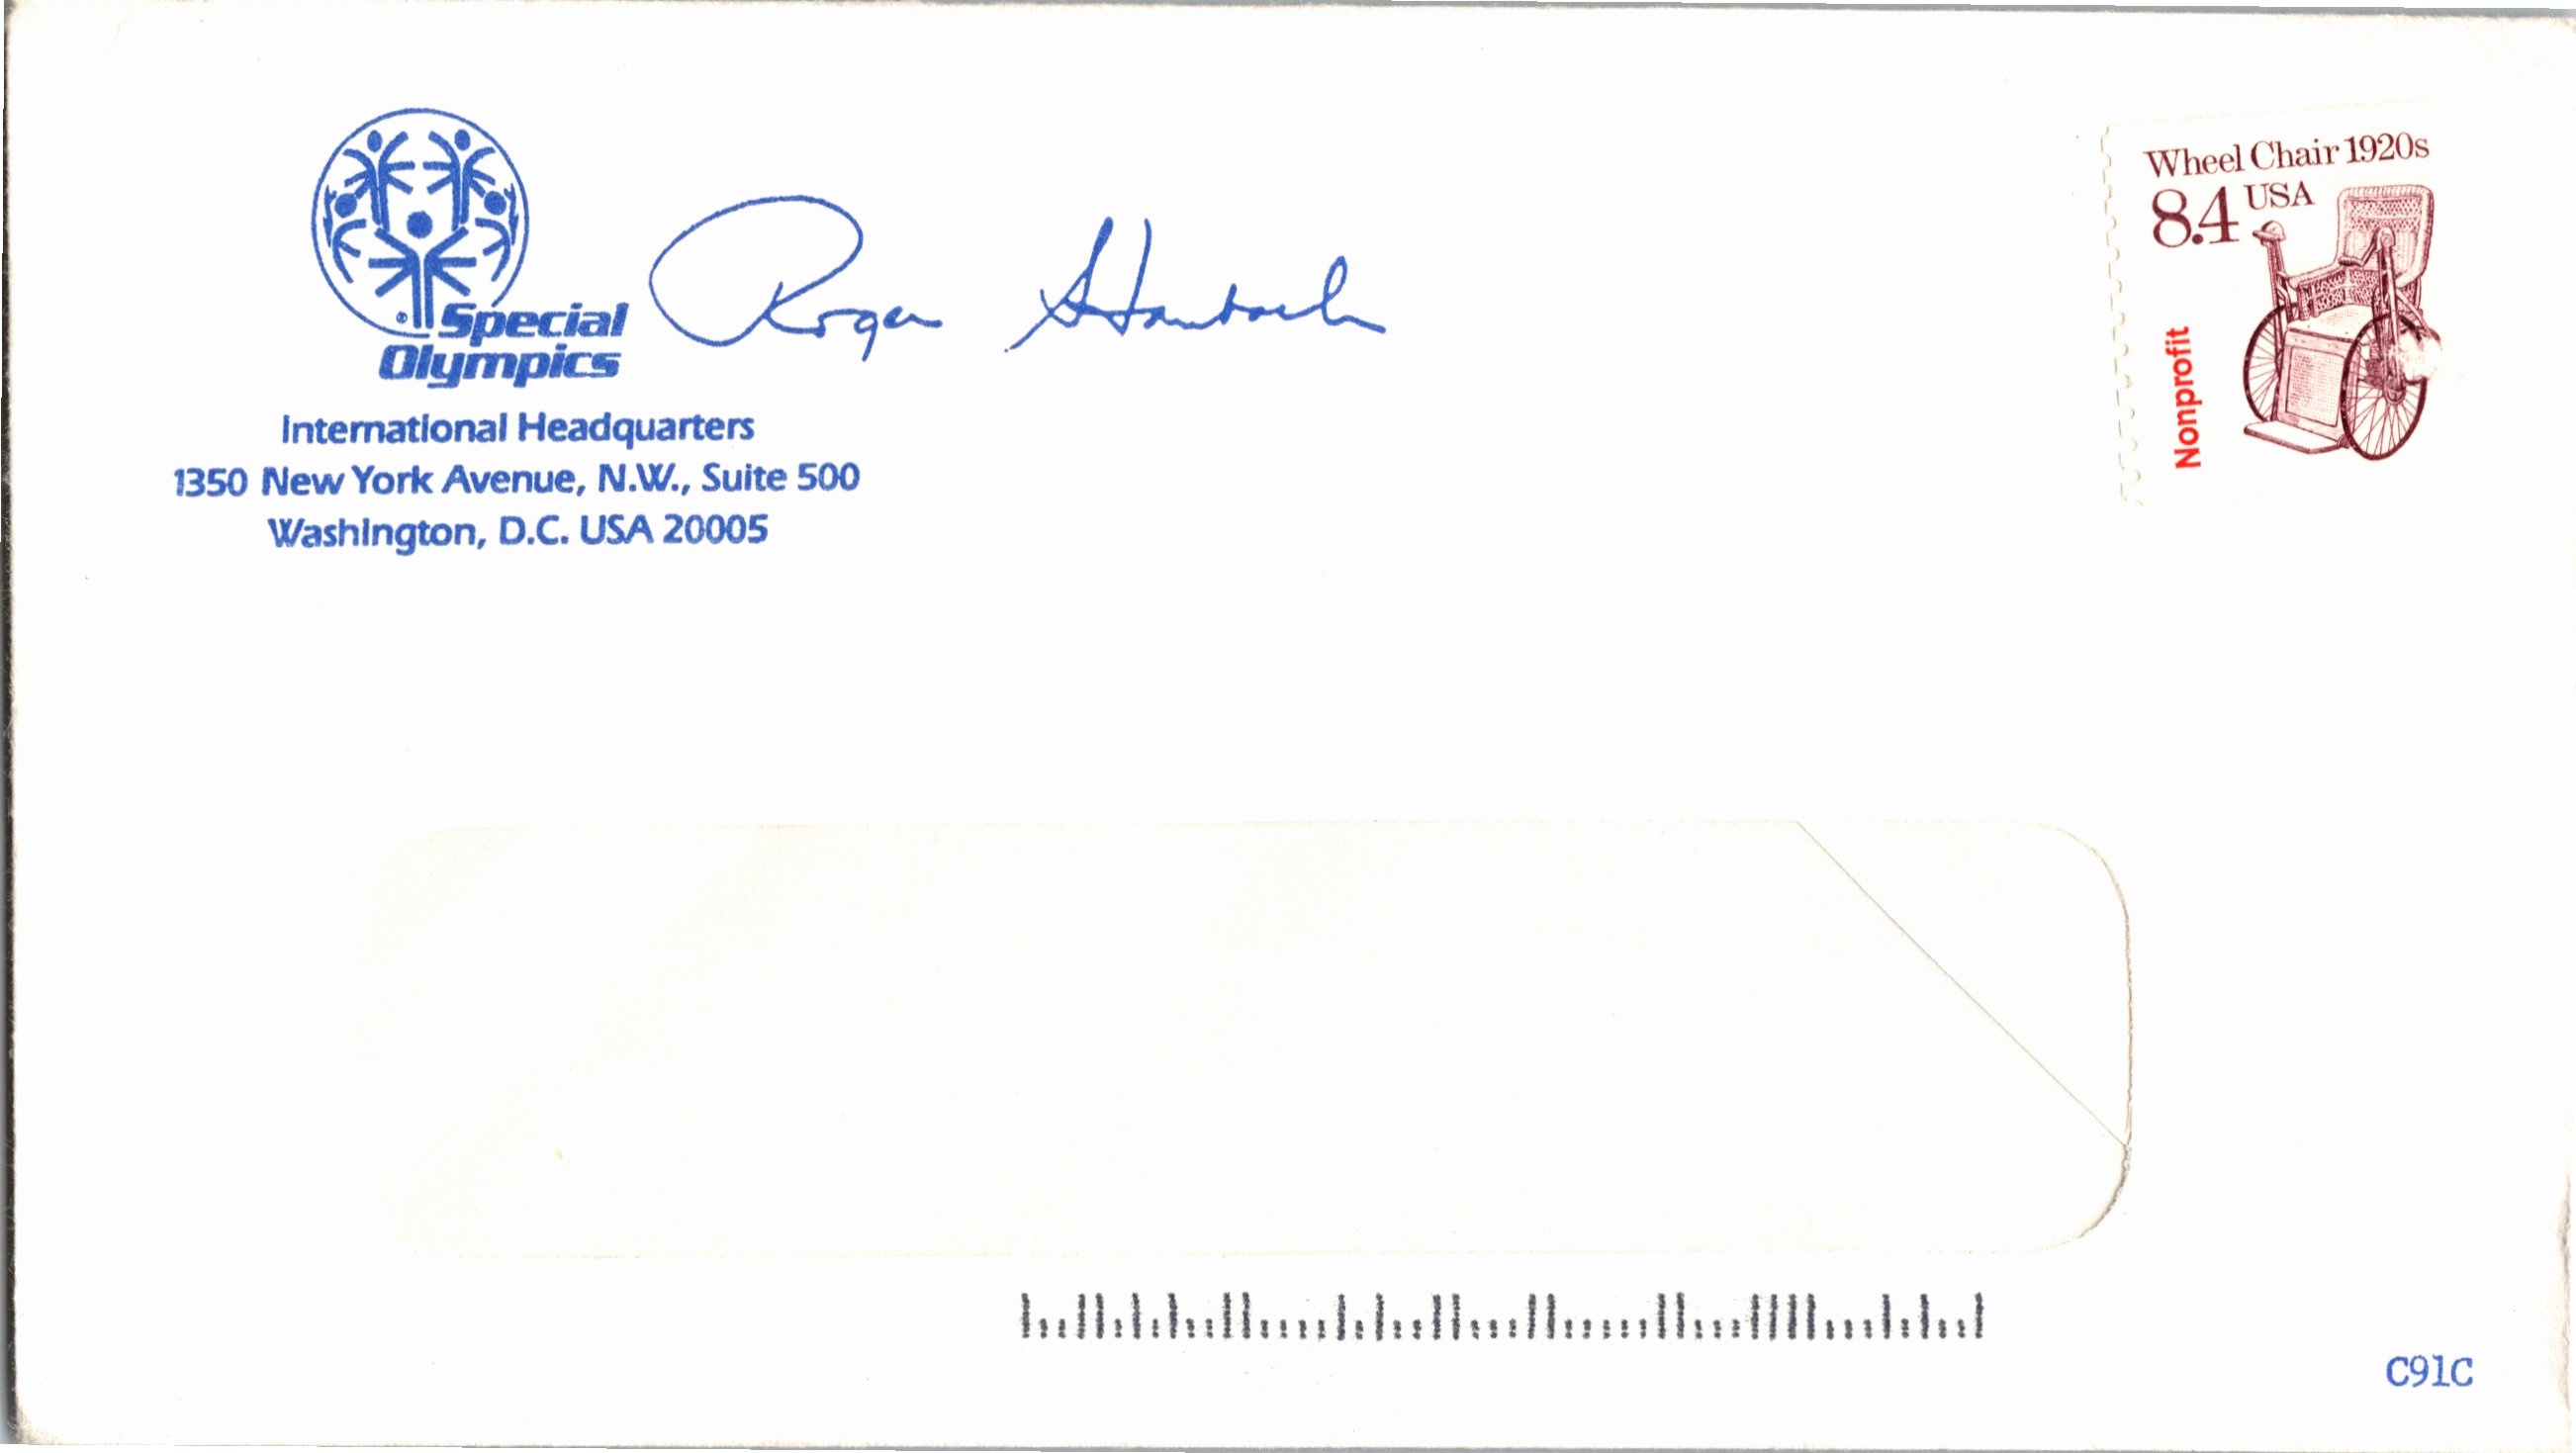 Special
Olympics
Roger Staubach
International Headquarters
1350 New York Avenue, N.W., Suite 500
Washington, D.C. USA 20005
Wheel Chair 1920s
8.4 USA
Nonprofit
C91C